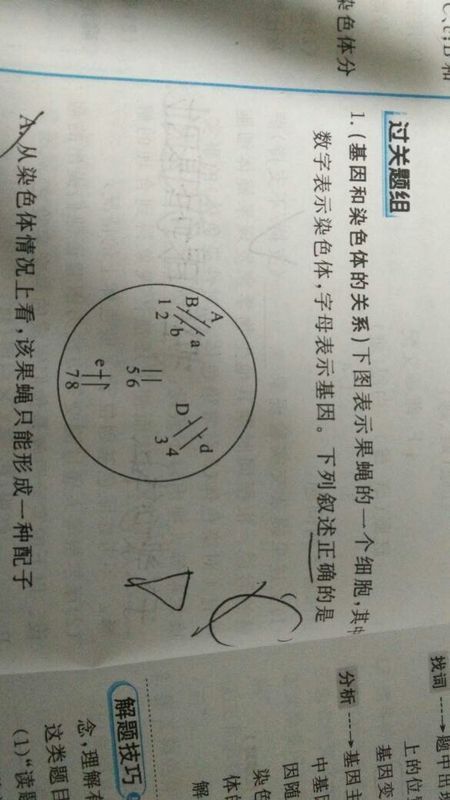 C、c；D 和
染色体分
过关题组
1.(基因和染色体的关系)下图表示果蝇的一个细胞,其中
数字表示染色体,字母表示基因。下列叙述正确的是
A
a
B
b
1 2
D
d
3
4
5 6
e
7 8
A.从染色体情况上看,该果蝇只能形成一种配子
D
找词
题中出现
上的位
基因变
分析
基因主
中基
因随
染色
体的
解
解题技巧
念,理解有
这类题目
(1)“读题